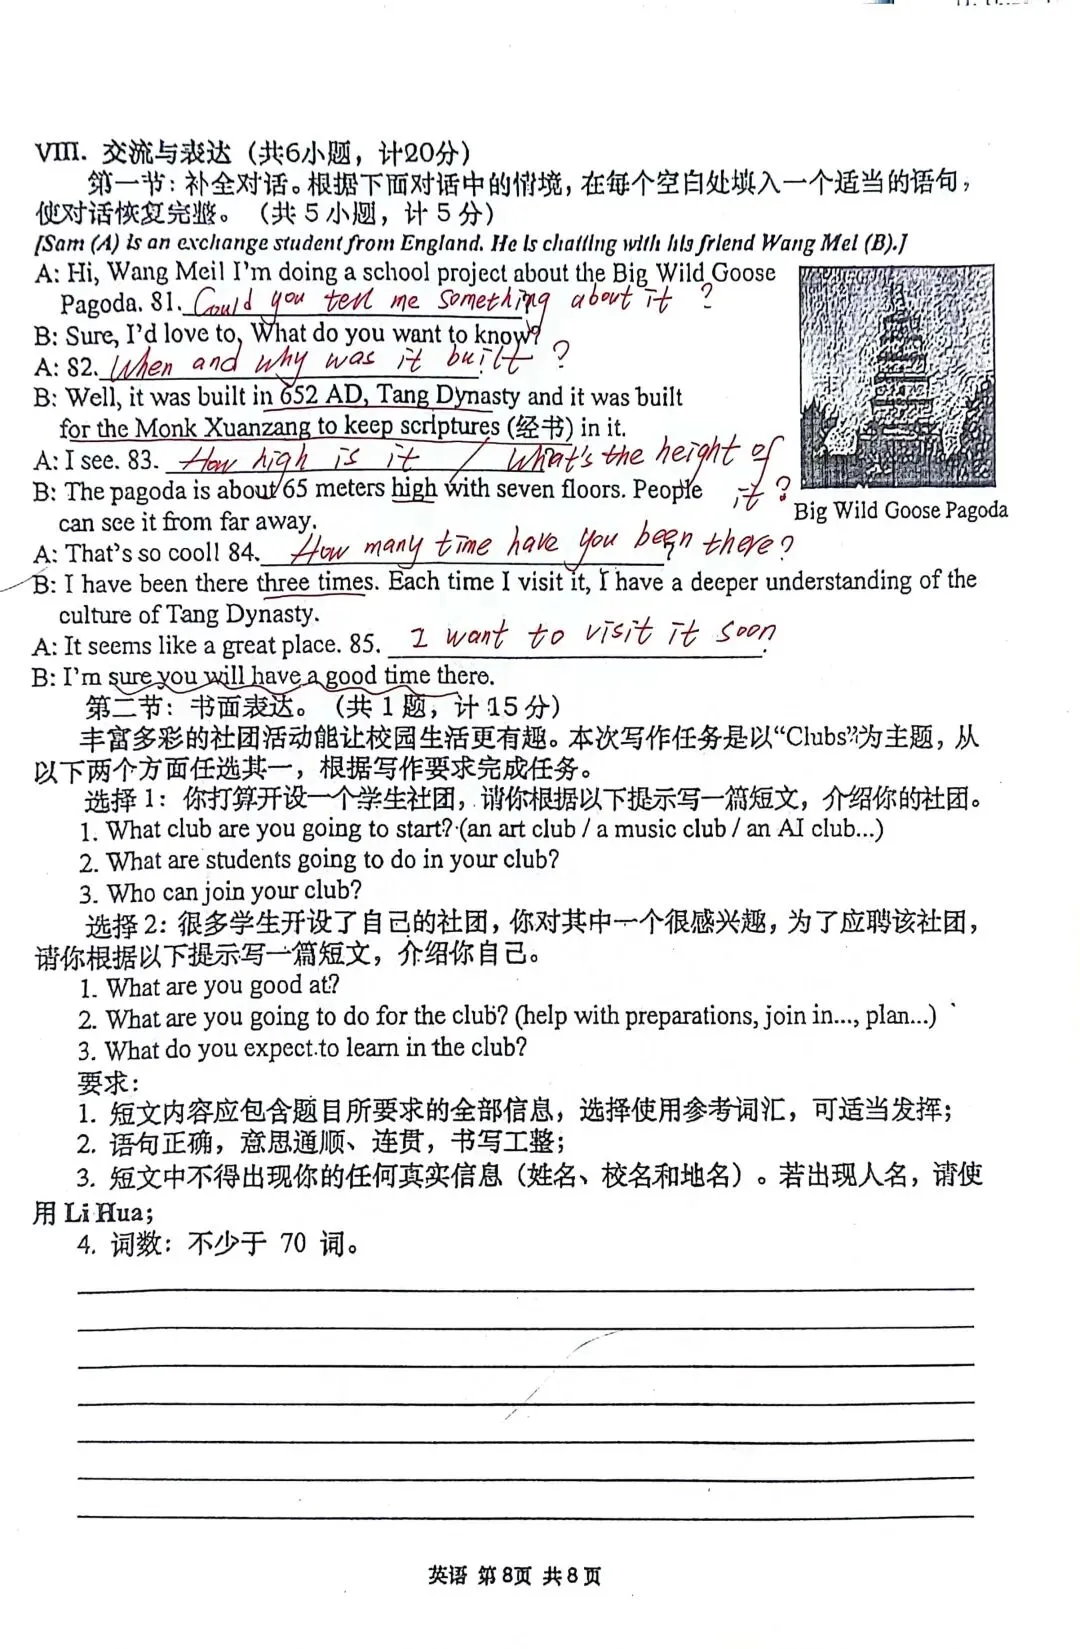 VIII. 交流与表达（共6小题，计20分）
第一节：补全对话。根据下面对话中的情境，在每个空白处填入一个适当的语句，
使对话恢复完整。（共 5 小题，计 5 分）
[Sam (A) is an exchange student from England. He is chatting with his friend Wang Mei (B).]
A: Hi, Wang Mei! I'm doing a school project about the Big Wild Goose
Pagoda. 81. Could you tell me something about it ?
B: Sure, I'd love to. What do you want to know?
A: 82. When and why was it built ?
B: Well, it was built in 652 AD, Tang Dynasty and it was built
for the Monk Xuanzang to keep scriptures (经书) in it.
A: I see. 83. How high is it / What's the height of
it ?
B: The pagoda is about 65 meters high with seven floors. People
can see it from far away.
Big Wild Goose Pagoda
A: That's so cool! 84. How many time have you been there?
B: I have been there three times. Each time I visit it, I have a deeper understanding of the
culture of Tang Dynasty.
A: It seems like a great place. 85. I want to visit it soon.
B: I'm sure you will have a good time there.
第二节：书面表达。（共 1 题，计 15 分）
丰富多彩的社团活动能让校园生活更有趣。本次写作任务是以“Clubs”为主题，从
以下两个方面任选其一，根据写作要求完成任务。
选择 1：你打算开设一个学生社团，请你根据以下提示写一篇短文，介绍你的社团。
1. What club are you going to start? (an art club / a music club / an AI club...)
2. What are students going to do in your club?
3. Who can join your club?
选择 2：很多学生开设了自己的社团，你对其中一个很感兴趣，为了应聘该社团，
请你根据以下提示写一篇短文，介绍你自己。
1. What are you good at?
2. What are you going to do for the club? (help with preparations, join in..., plan...)
3. What do you expect to learn in the club?
要求：
1. 短文内容应包含题目所要求的全部信息，选择使用参考词汇，可适当发挥；
2. 语句正确，意思通顺、连贯，书写工整；
3. 短文中不得出现你的任何真实信息（姓名、校名和地名）。若出现人名，请使
用 Li Hua；
4. 词数：不少于 70 词。
英语 第8页 共8页